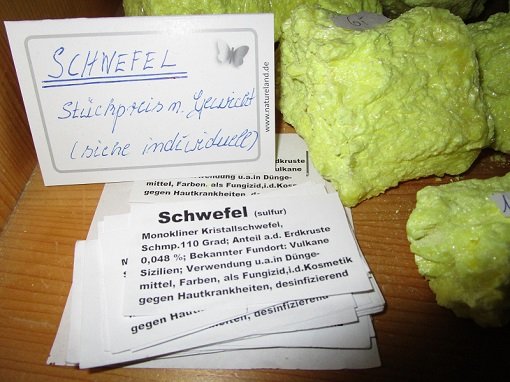 SCHWEFEL
Stückpreis n. Gewicht
(siehe individuell)
www.natureland.de
6.-
Erdkruste
Vulkane
Verwendung u.a.in Dünge-
mittel, Farben, als Fungizid,i.d.Kosmetik
gegen Hautkrankheiten, desinfizierend
Schwefel (sulfur)
Monokliner Kristallschwefel,
Schmp.110 Grad; Anteil a.d. Erdkruste
0,048 %; Bekannter Fundort: Vulkane
Sizilien; Verwendung u.a.in Dünge-
mittel, Farben, als Fungizid,i.d.Kosmetik
gegen Hautkrankheiten, desinfizierend
gegen Hautkrankheiten, desinfizierend